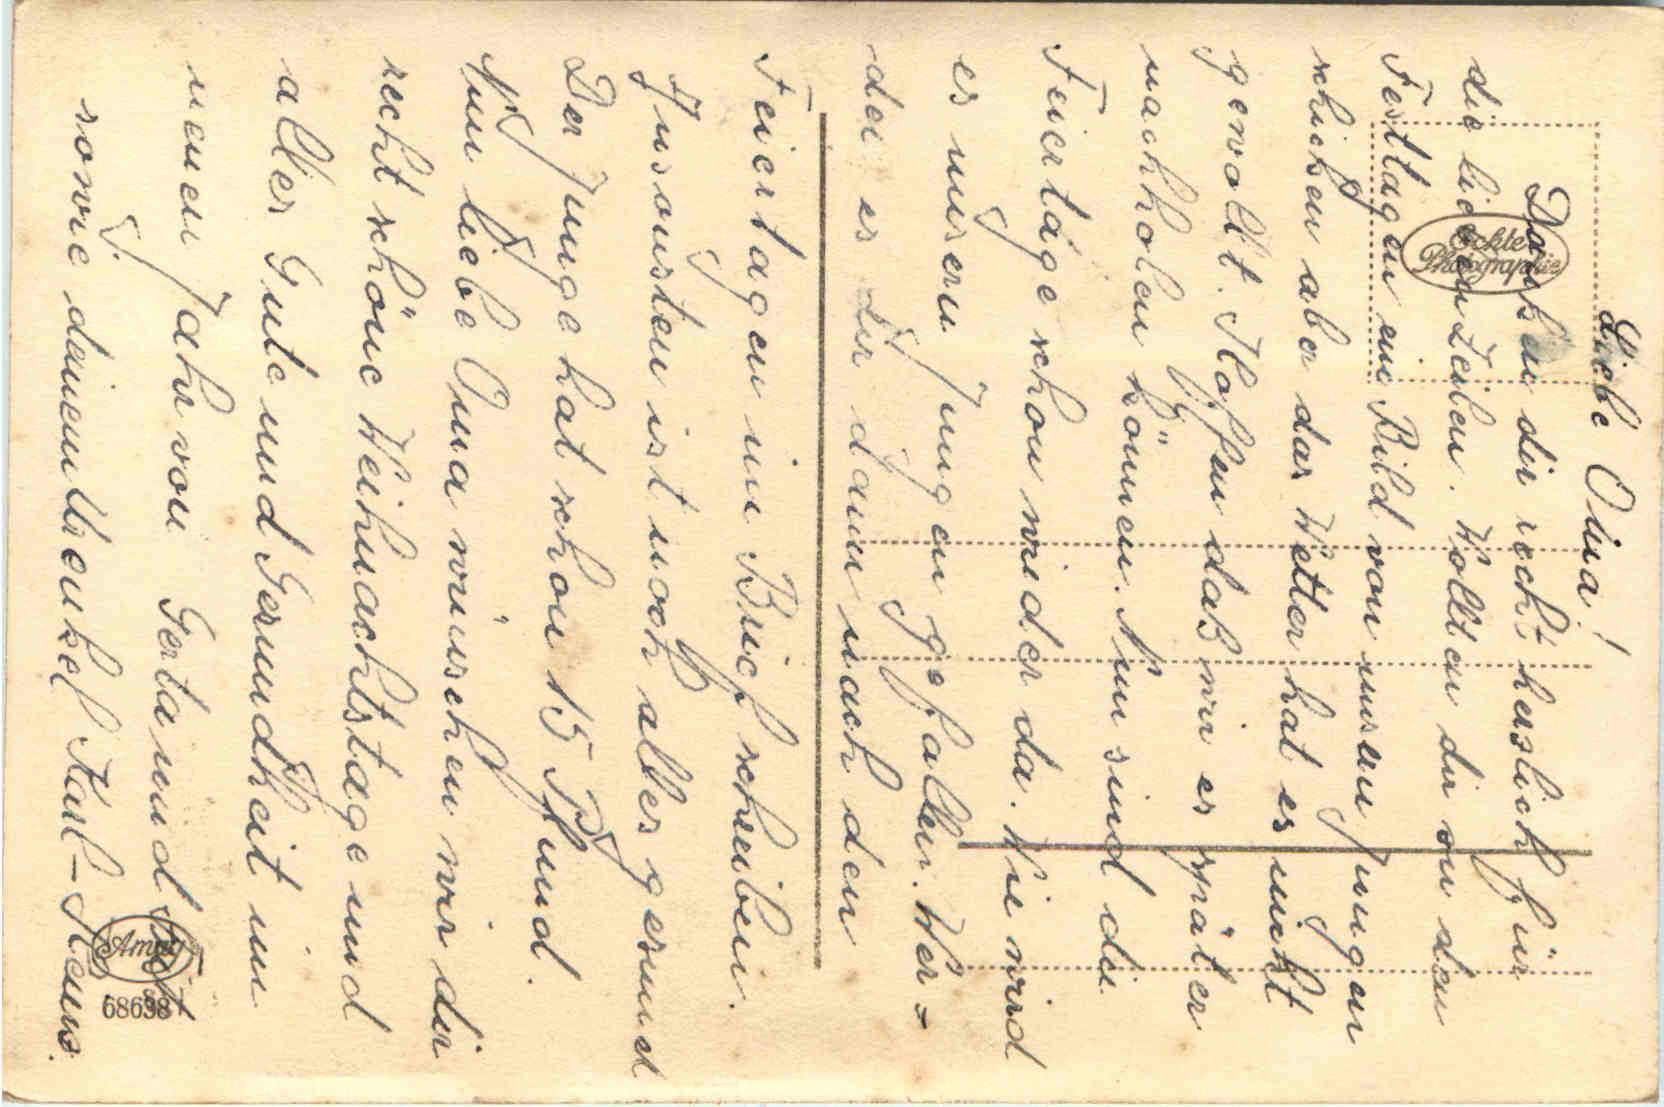 Liebe Oma!
Danken dir recht herzlich für
die lieben Zeilen. Wollten dir zu den
Festtagen ein Bild von unsren Jungen
schicken aber das Wetter hat es nicht
gewollt. Hoffen daß wir es später
nachholen können. Nun sind die
Feiertage schon wieder da. Wie wird
es unsern Jungen gefallen. Wer=
den es dir dann nach den
Feiertagen im Brief schreiben.
Ansonsten ist noch alles gesund
Der Junge hat schon 15 Pfund.
Nun liebe Oma wünschen wir dir
recht schöne Weihnachtstage und
alles Gute und Gesundheit im
neuen Jahr von Gerta und
sowie deinem Urenkel Karl-Heinz.
Echte
Photographie
Amag
68698